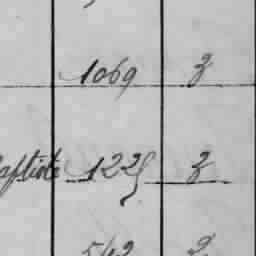 1069 3
aptiste 1225 3
542 2